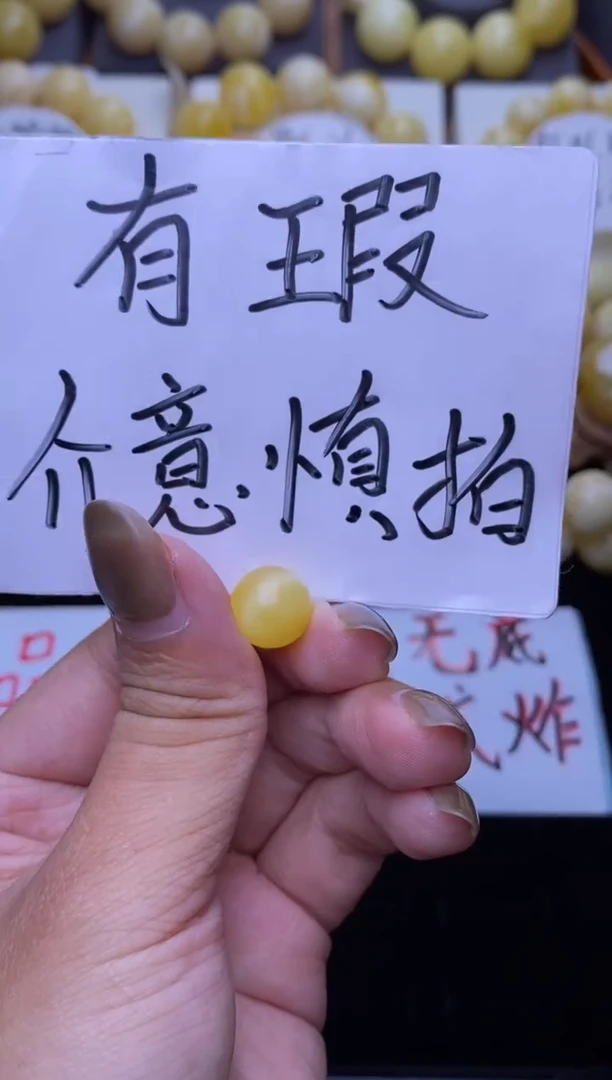 有瑕
介意慎拍
无底
炸